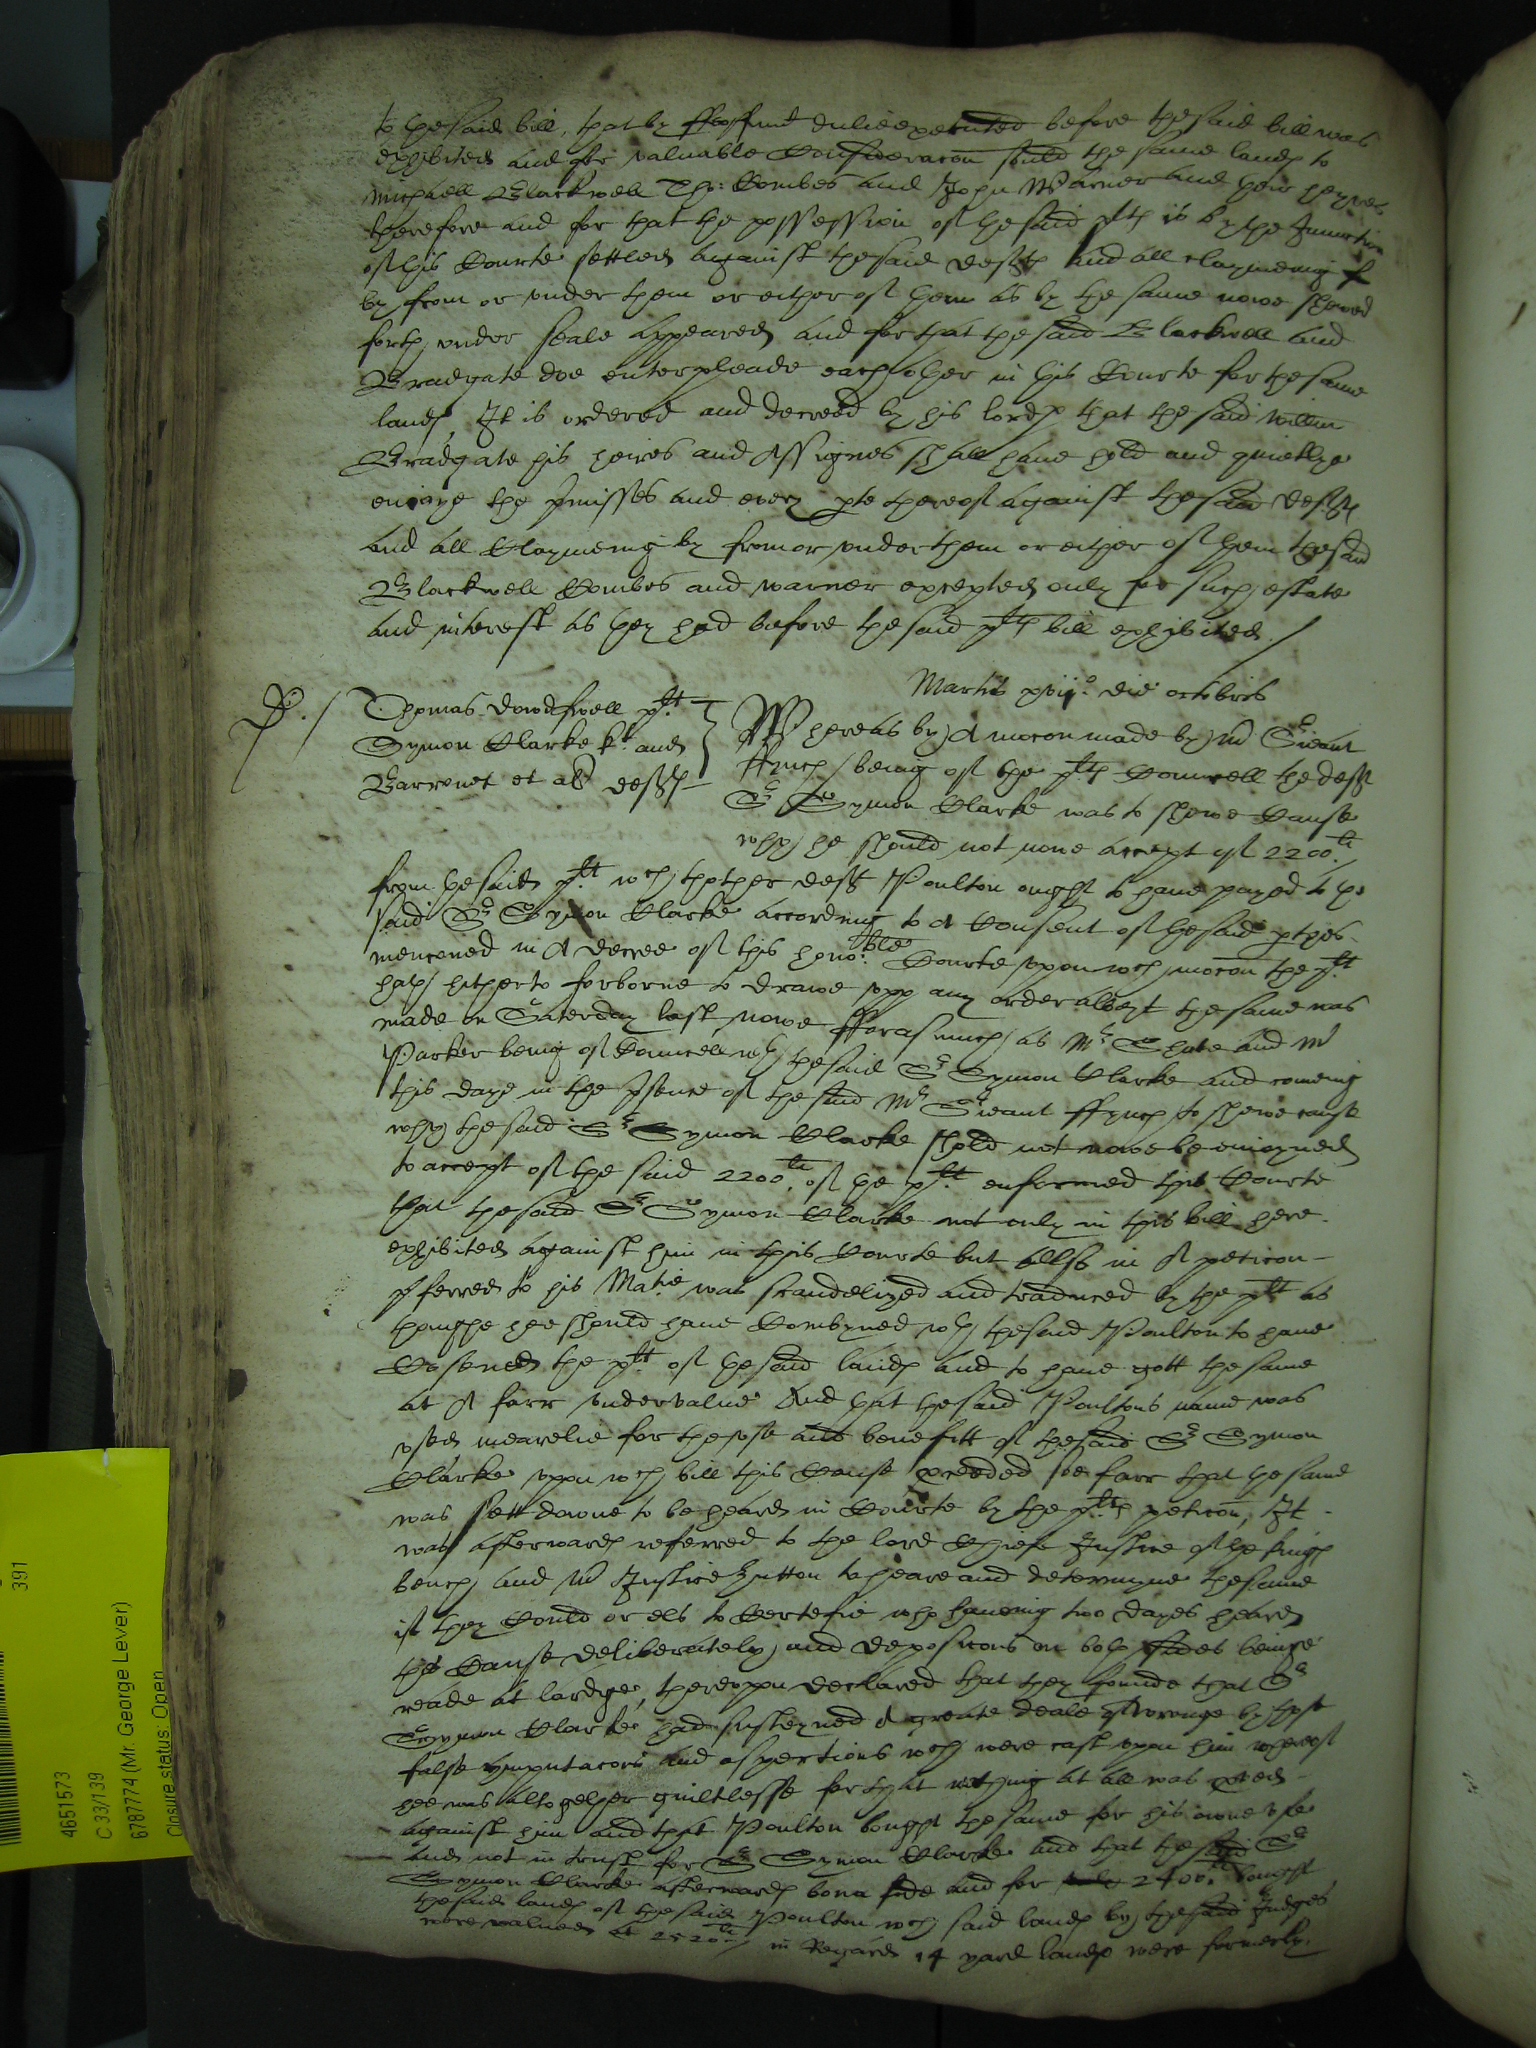 to the said bill, that by ffeoffmt dulie executed before the said bill was
exhibited and for valuable Consideracon sould the same landℯ to
Michaell Blackwell Tho: Combes and John Warner and their heyres
therefore and for that the possession of the said plt is by the Iniunction
of this Courte settled against the said defℯ And all claymeing
by from or vnder them or either of them as by the same nowe shewed
forth vnder seale appeared and for that the said Blackwell and
Bradgate doe enterpleade each other in this Courte for the same
landℯ It is ordered and decreed by his lordp that the said Willm
Bradgate his heires and Assignes shall haue hold and quietlye
enioye the pmisses and every pte thereof against the said defℯ
and all Claymeing by from or vnder them or either of them the said
Blackwell Combes and warner excepted only for such estate
and interest as they had before the said pltℯ bill exhibited /
Martis xviijo die octobris
P. / Thomas Dowdeswell plt
Symon Clarke kt and
Barronet et als deftℯ
Whereas by A mocon made by Mr Sieant
ffynch being of the pltℯ Councell the deft
Sr Symon Clarke was to shewe Cause
why he should not nowe accept of 2200li
from the said plt wch thother deft Poulton ought to haue payed to the
said Sr Symon Clarke according to A Consent of the said pties
mencioned in A decree of this honoble Courte vpon wch mocon the plt
hath hitherto forborne to drawe vpp any order albeyt the same was
made on Saterday last Nowe fforasmuch as Mr Shute and Mr
Parker being of Councell wth the said Sr Symon Clarke and coming
this daye in the psence of the said Mr Sieant ffynch to shewe cause
why the said Sr Symon Clarke shold not nowe be enioyned
to accept of the said 2200li of the plt enformed this Courte
that the said Sr Symon Clarke not only in this bill here
exhibited against him in this Courte but allso in A peticon
pferred to his Matie was scandelized and traduced by the plt as
thoughe hee should haue Combyned wth the said Poulton to haue
the plt of the said landℯ and to haue gott the same
at A farr vndervalue And that the said Poultons name was
vsed mearelie for the vse and benefitt of the said Sr Symon
Clarke vpon wch bill this Cause pceeded soe farr that the same
was sett downe to be heard in Courte by the pltℯ peticon, It
was afterwardℯ referred to the lord Chiefe Justice of the kingℯ
bench and Mr Justice Hutton to heare and determyne the same
if they Could or els to Certefie who haueing two dayes heard
the Cause deliberately and deposicons on both sides beinge
reade at lardge, therevppon declared that they founde that Sr
Symon Clarke had susteyned A greate deale of wronge by those
false ymputacons and aspertions wch were cast vpon him whereof
hee was altogether guiltlesse for that nothing at all was pved
against him and that Poulton bought the same for his owne vse
and not in trust for Sr Symon Clarke and that the said Sr
Symon Clarke afterwardℯ bona fide and for 2400li bought
the said landℯ of the said Poulton wch said landℯ by the said Judges
were valued at 2520li in Regard 14 yard landℯ were formerly
391
4651573
C 33/139
6787774 (Mr. George Lever)
Closure status: Open